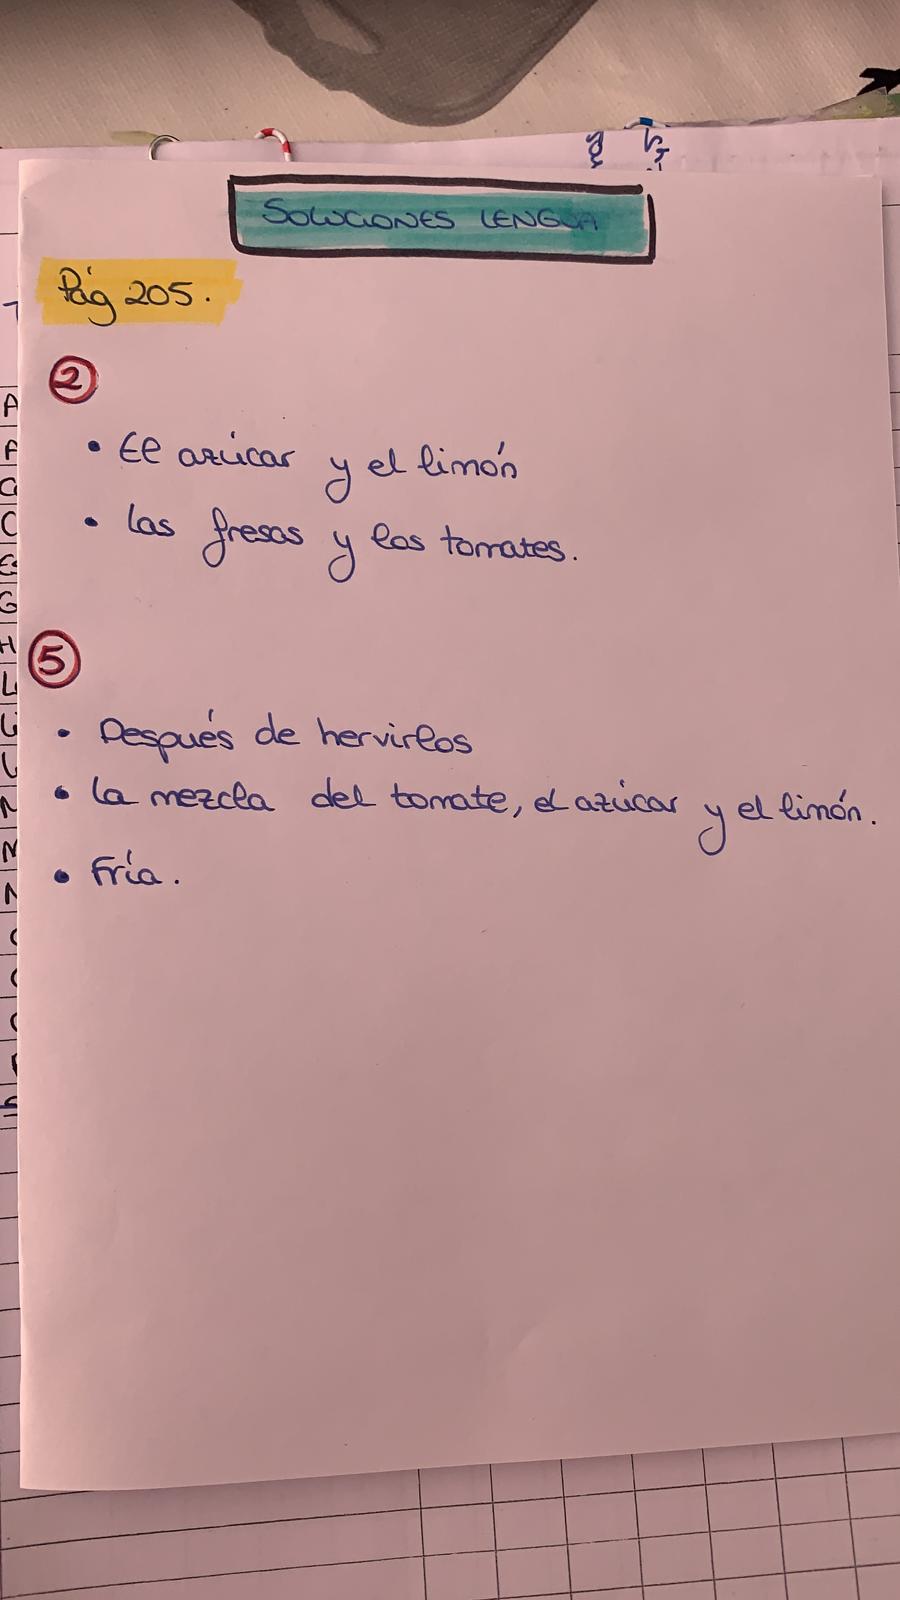 SOLUCIONES LENGUA
Pág 205.
2
• El azúcar y el limón
• Las fresas y los tomates.
5
• Después de hervirlos
• La mezcla del tomate, el azúcar y el limón.
• Fría.